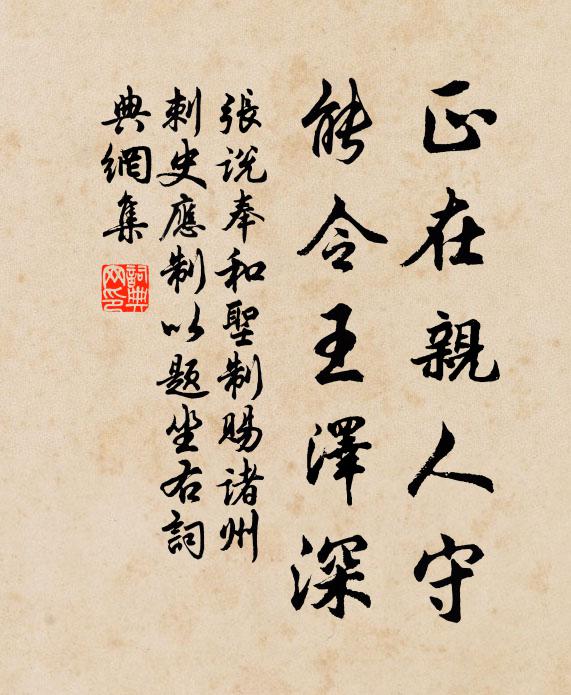 正在親人守
能令王澤深
張説奉和聖制賜諸州
刺史應制以題坐右詞
典網集
詞典網印